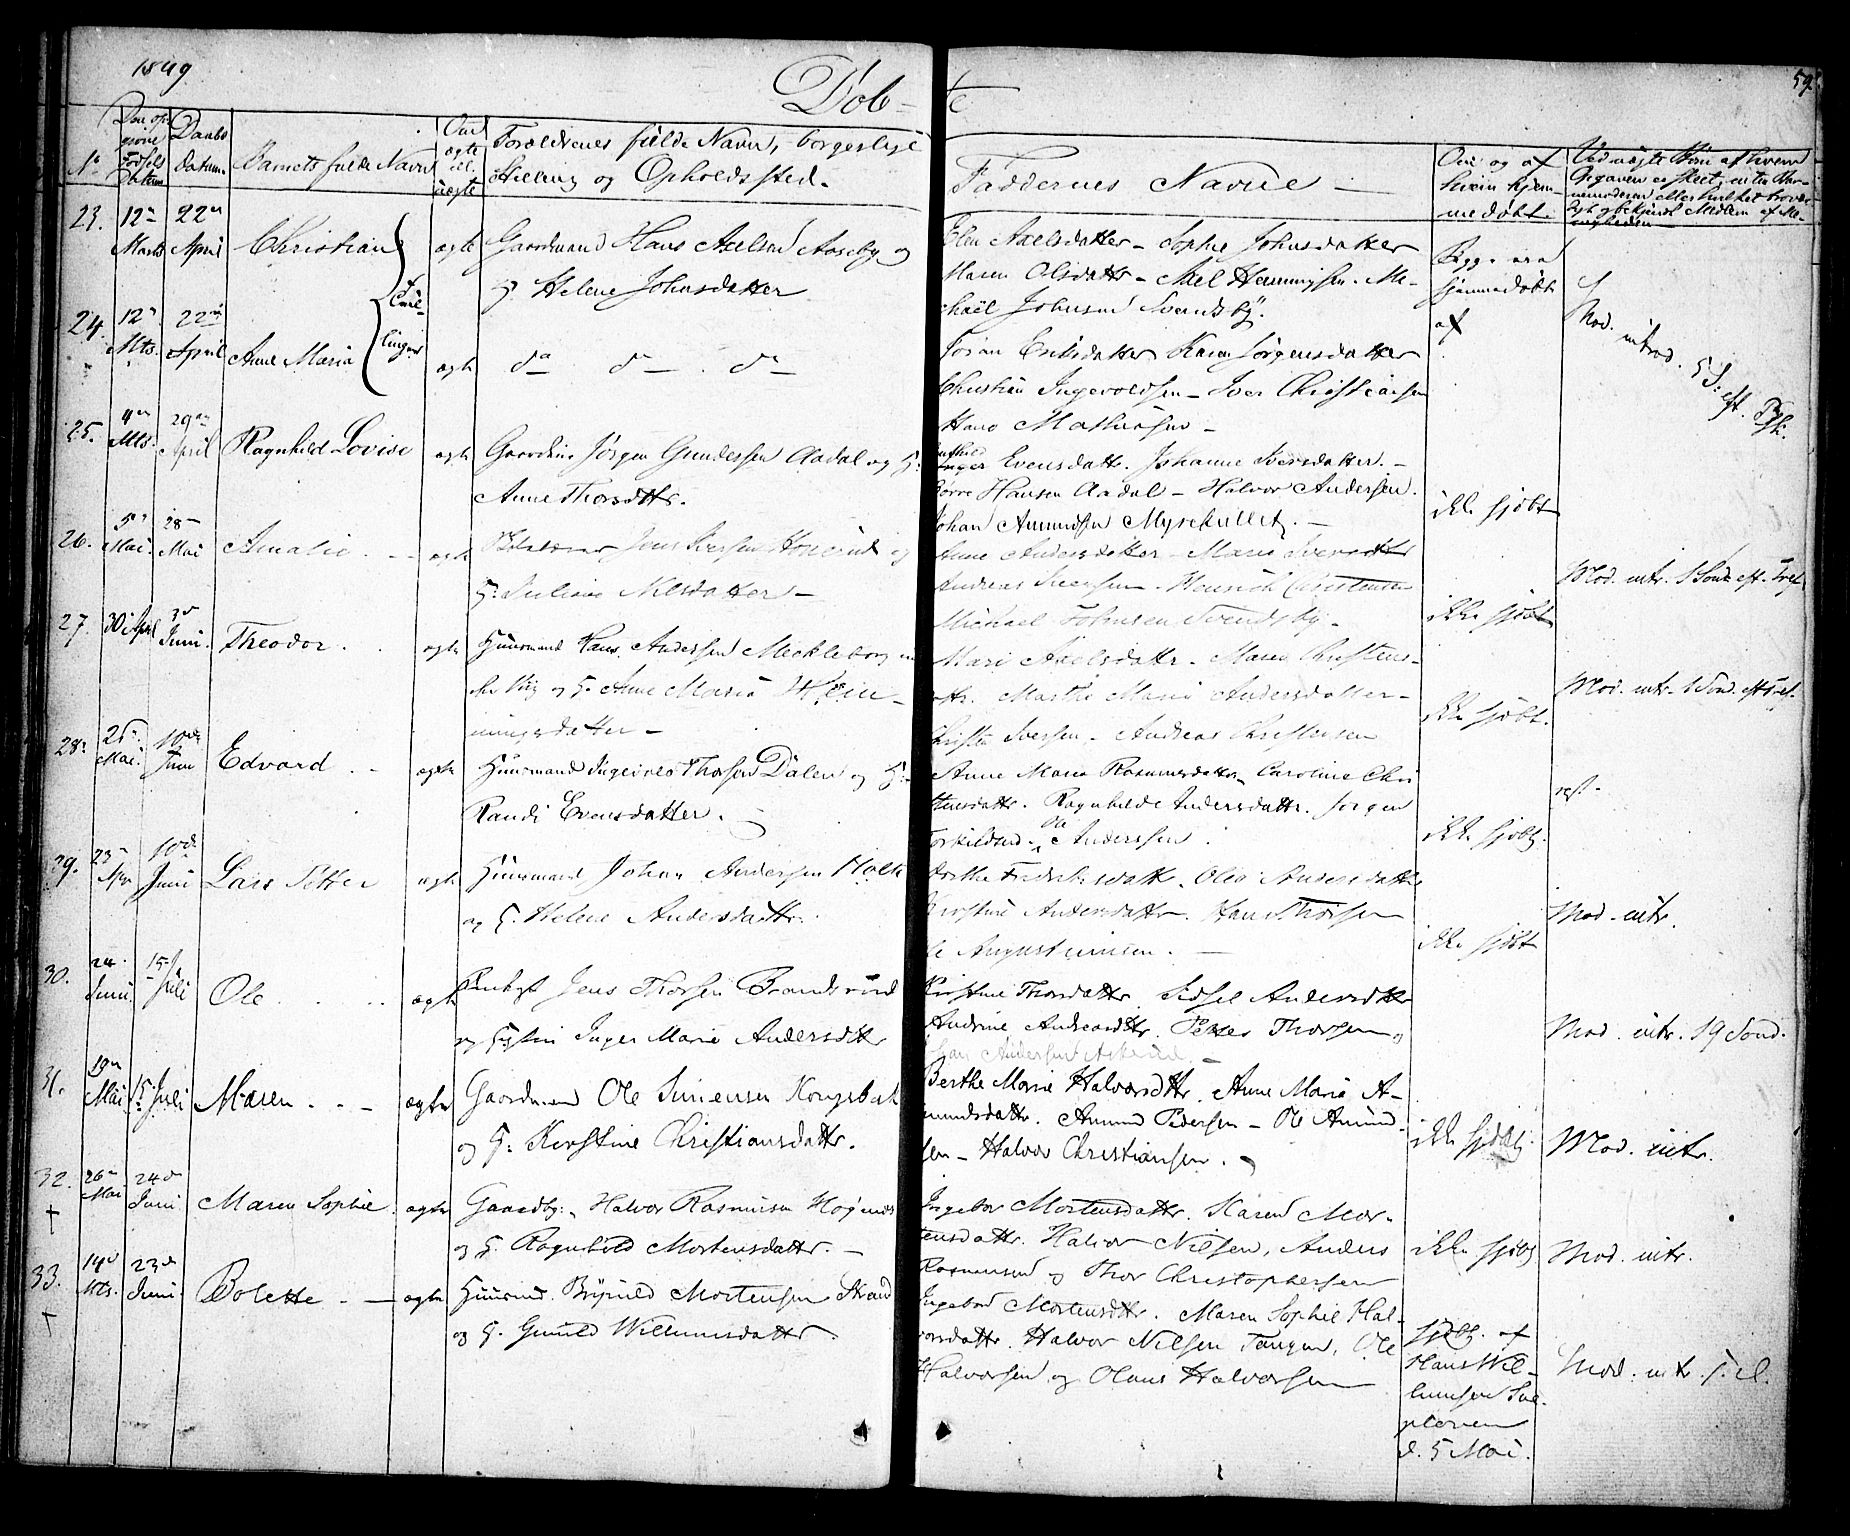 1849
Døb-te
59.
No
Den op-
givne
Fødsels
Datum
Daabs
Datum
Barnets fulde Navn
Om
ægte
ell.
uægte
Forældrenes fulde Navn, borgerlige
Stilling og Opholdssted.
Faddernes Navne
Om og af
hvem hjem-
medøbt.
23. 12te Marts 22de April Christian ægte Gaardmand Hans Axelsen Aaseby og
H. Helene Johnsdatter
Elen Axelsdatter - Sophie Johnsdatter
Maren Olsdattr - Axel Hemmingsen. Mi-
chaël Johnsen Svendsby.
Begge ere
hjemmedøbt
af
Tvil-
linger
24. 12te Mts. 22de April Anne Maria ægte do do do
Eriksdatter Karen Jørgensdatter
Christian Ingevoldsen - Iver Christiansen
Hans Mathiesen -
Mod. introd. 5 S. eft. Pask.
25. 4de Mts. 29de April Ragnhild Lovise ægte Gaardm. Jørgen Gundersen Aadal og H.
Anne Thorsdttr.
Inger Evensdattr. Johanne Iversdatter. -
Børre Hansen Aadal - Halvor Andersen.
Johan Amundsen Myrekullet. -
ikke hjdbt
26. 5te Mai 28de Mai Amalie ægte Jens Iversen og
H. Juliane Nilsdatter -
Anne Andersdatter - Maren Iversdttr
Andreas Svensen - Henrich Christensen
Michael Johnsen Svendsby -
ikke hjdbt
Mod. intr. 1 Sond. eft. Tref.
27. 30 April 3de Juni Theodor ægte Huusmand Hans Andersen Mechleborg
og H. Anne Maria Hem-
mingsdatter -
Mari Axelsdattr. Maren Christens-
dtr. Marthe Maria Andersdatter -
Christen Iversen - Andreas Christensen
ikke hjdbt.
Mod. intr. 1 Sond. eft. Tref.
28. 25de Mai 10de Juni Edvard ægte Huusmand Ingevald Thorsen Dalen og H.
Randi Evensdatter.
Anne Maria Rasmusdattr - Caroline Chri
stensdattr. Ragnhilde Andersdattr. Jørgen
Torkildsen. Andersen.
ikke hjdbt.
29. 23de Apr. 10de Juni Lars Petter ægte Huusmand Johan Andersen Holt
og H. Helene Andersdattr.
Dorthe Fredriksdattr. Olea Andersdattr
Kirstine Andersdattr. Hans Thorsen
Ole Augustinusen. -
ikke hjdbt
Mod. intr.
30. 24. Juni 15. Juli Ole ægte Jens Thorsen Brandsrud
og Hustru Inger Marie Andersdttr
Kirstine Thorsdattr. Sidsel Andersdttr
Andrine Andreasdttr. Petter Thorsen og
Lars Andersen
Mod. intr. 19 Sond.
31. 19de Mai 15. Juli Maren ægte Gaardmand Ole Simensen Kongsbak
og H. Kirstine Christiansdattr.
Berthe Marie Halvorsdttr. Anne Maria A-
mundsdattr. Amund Pedersen - Ole Amund-
sen - Halvor Christiansen.
ikke hjdbt.
Mod. intr.
32. † 26de Mai 24de Juni Maren Sophie ægte Gaardbr. Halvor Rasmusen Høgnes
og H. Ragnhild Mortensdattr. -
Ingebor Mortensdattr. Karen Mor-
tensdattr. Halvor Nilsen, Anders
Rasmussen og Thor Christophersen
ikke hjdbt
Mod. intr.
33. † 14de Mts. 23de Juni Bolette ægte Huusmd. Brynild Mortensen Strand
og H. Gunild Willumsdattr.
Ingebor Mortensdttr. Maren Sophie Hal-
vorsdattr. Halvor Nilsen Tangen, Ole
Halvorsen og Olaus Halvorsen
hjdbt. af
Hans Wil-
lumsen
d. 5 Mai.
Mod. intr. s. d.